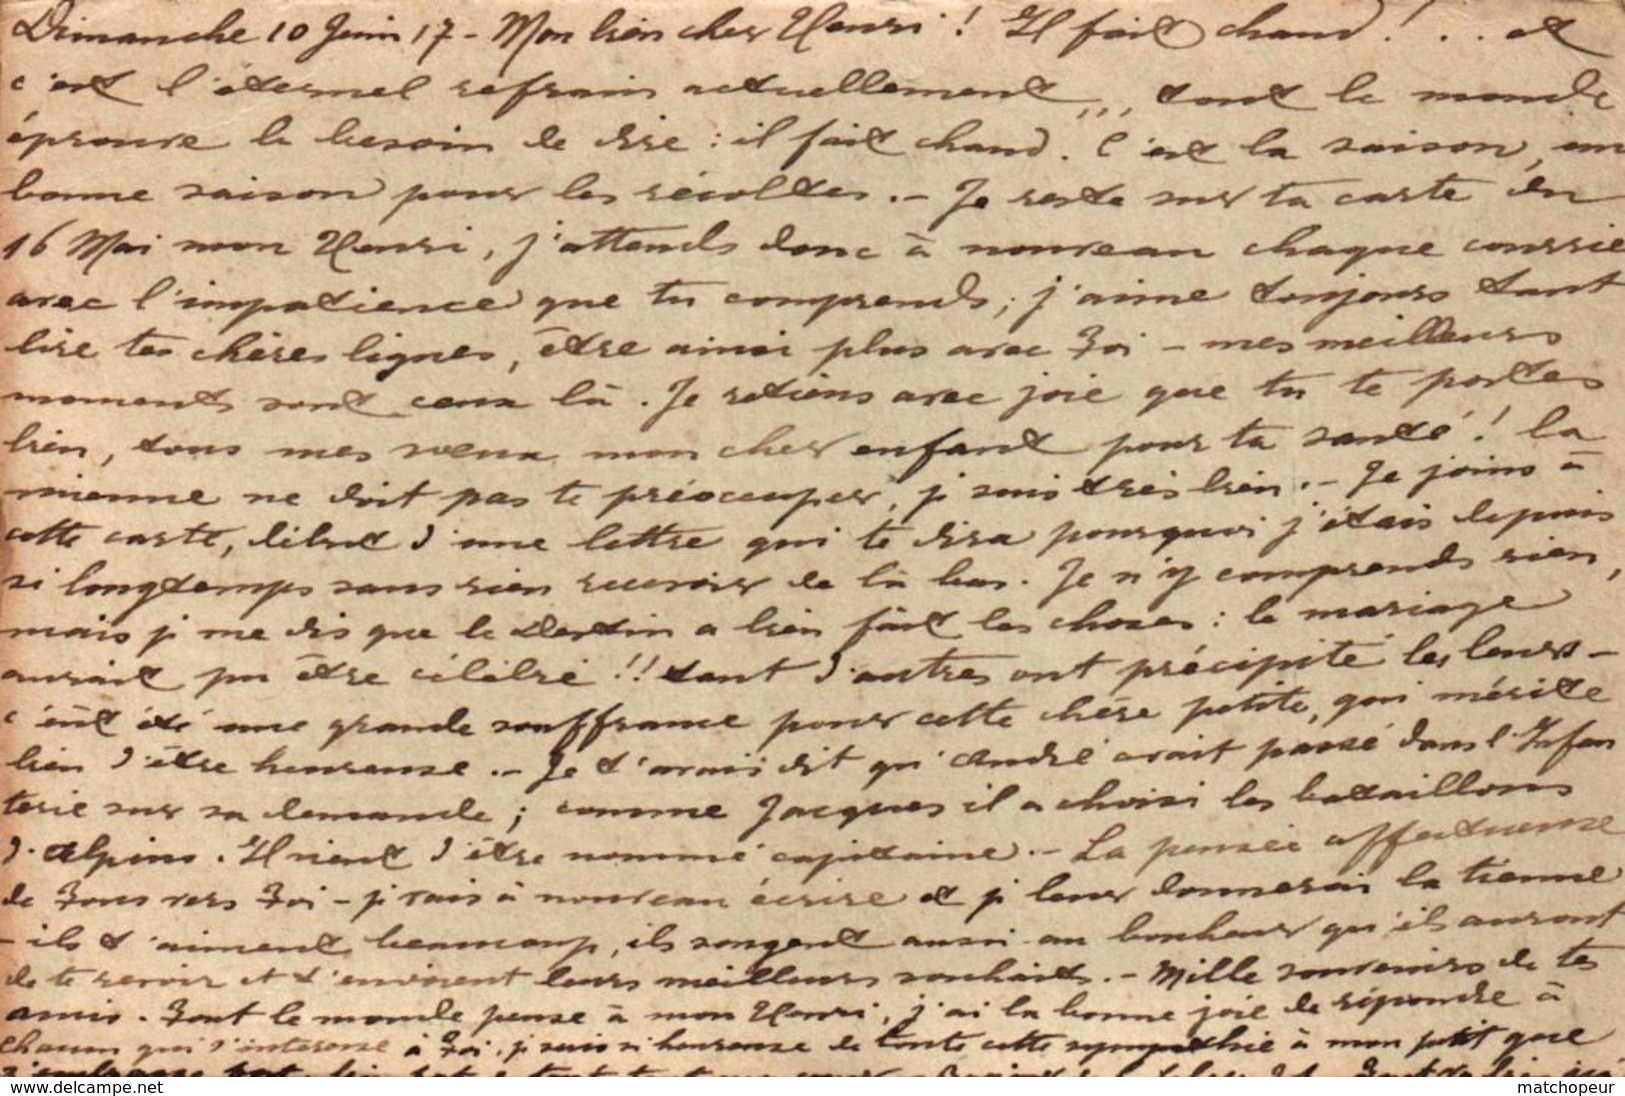 Dimanche 10 Juin 17 - Mon bien cher Henri ! Il fait chaud ! . . et
c'est l'éternel refrain actuellement,,, tout le monde
éprouve le besoin de dire : il fait chaud. C'est la saison, une
bonne saison pour les récoltes. - Je reste sur ta carte du
16 Mai mon Henri, j'attends donc à nouveau chaque courrie
avec l'impatience que tu comprends ; j'aime toujours tant
lire tes chères lignes, être ainsi plus avec Toi - mes meilleurs
moments sont ceux là. Je retiens avec joie que tu te portes
bien, tous mes vœux mon cher enfant pour ta santé ! la
mienne ne doit pas te préoccuper, je suis très bien. - Je joins à
cette carte, début d'une lettre qui te dira pourquoi j'étais depuis
si longtemps sans rien recevoir de là bas. Je n'y comprends rien,
mais je me dis que le Destin a bien fait les choses : le mariage
aurait pu être célébré !! tant d'autres ont précipité les leurs -
c'eût été une grande souffrance pour cette chère petite, qui mérite
bien d'être heureuse. - Je t'avais dit qu'André avait passé dans l'Infan
terie sur sa demande ; comme Jacques il a choisi les bataillons
d'Alpins. Il vient d'être nommé capitaine. - La pensée affectueuse
de Tous vers Toi - je vais à nouveau écrire et je leur donnerai la tienne
- ils t'aiment beaucoup, ils songent aussi au bonheur qu'ils auront
de te revoir et t'envoient leurs meilleurs souhaits. - Mille souvenirs de tes
amis. Tout le monde pense à mon Henri, j'ai la bonne joie de répondre à
chacun qui s'intéresse à Toi, je suis si heureuse de toute cette sympathie à mon petit que
matchopeur